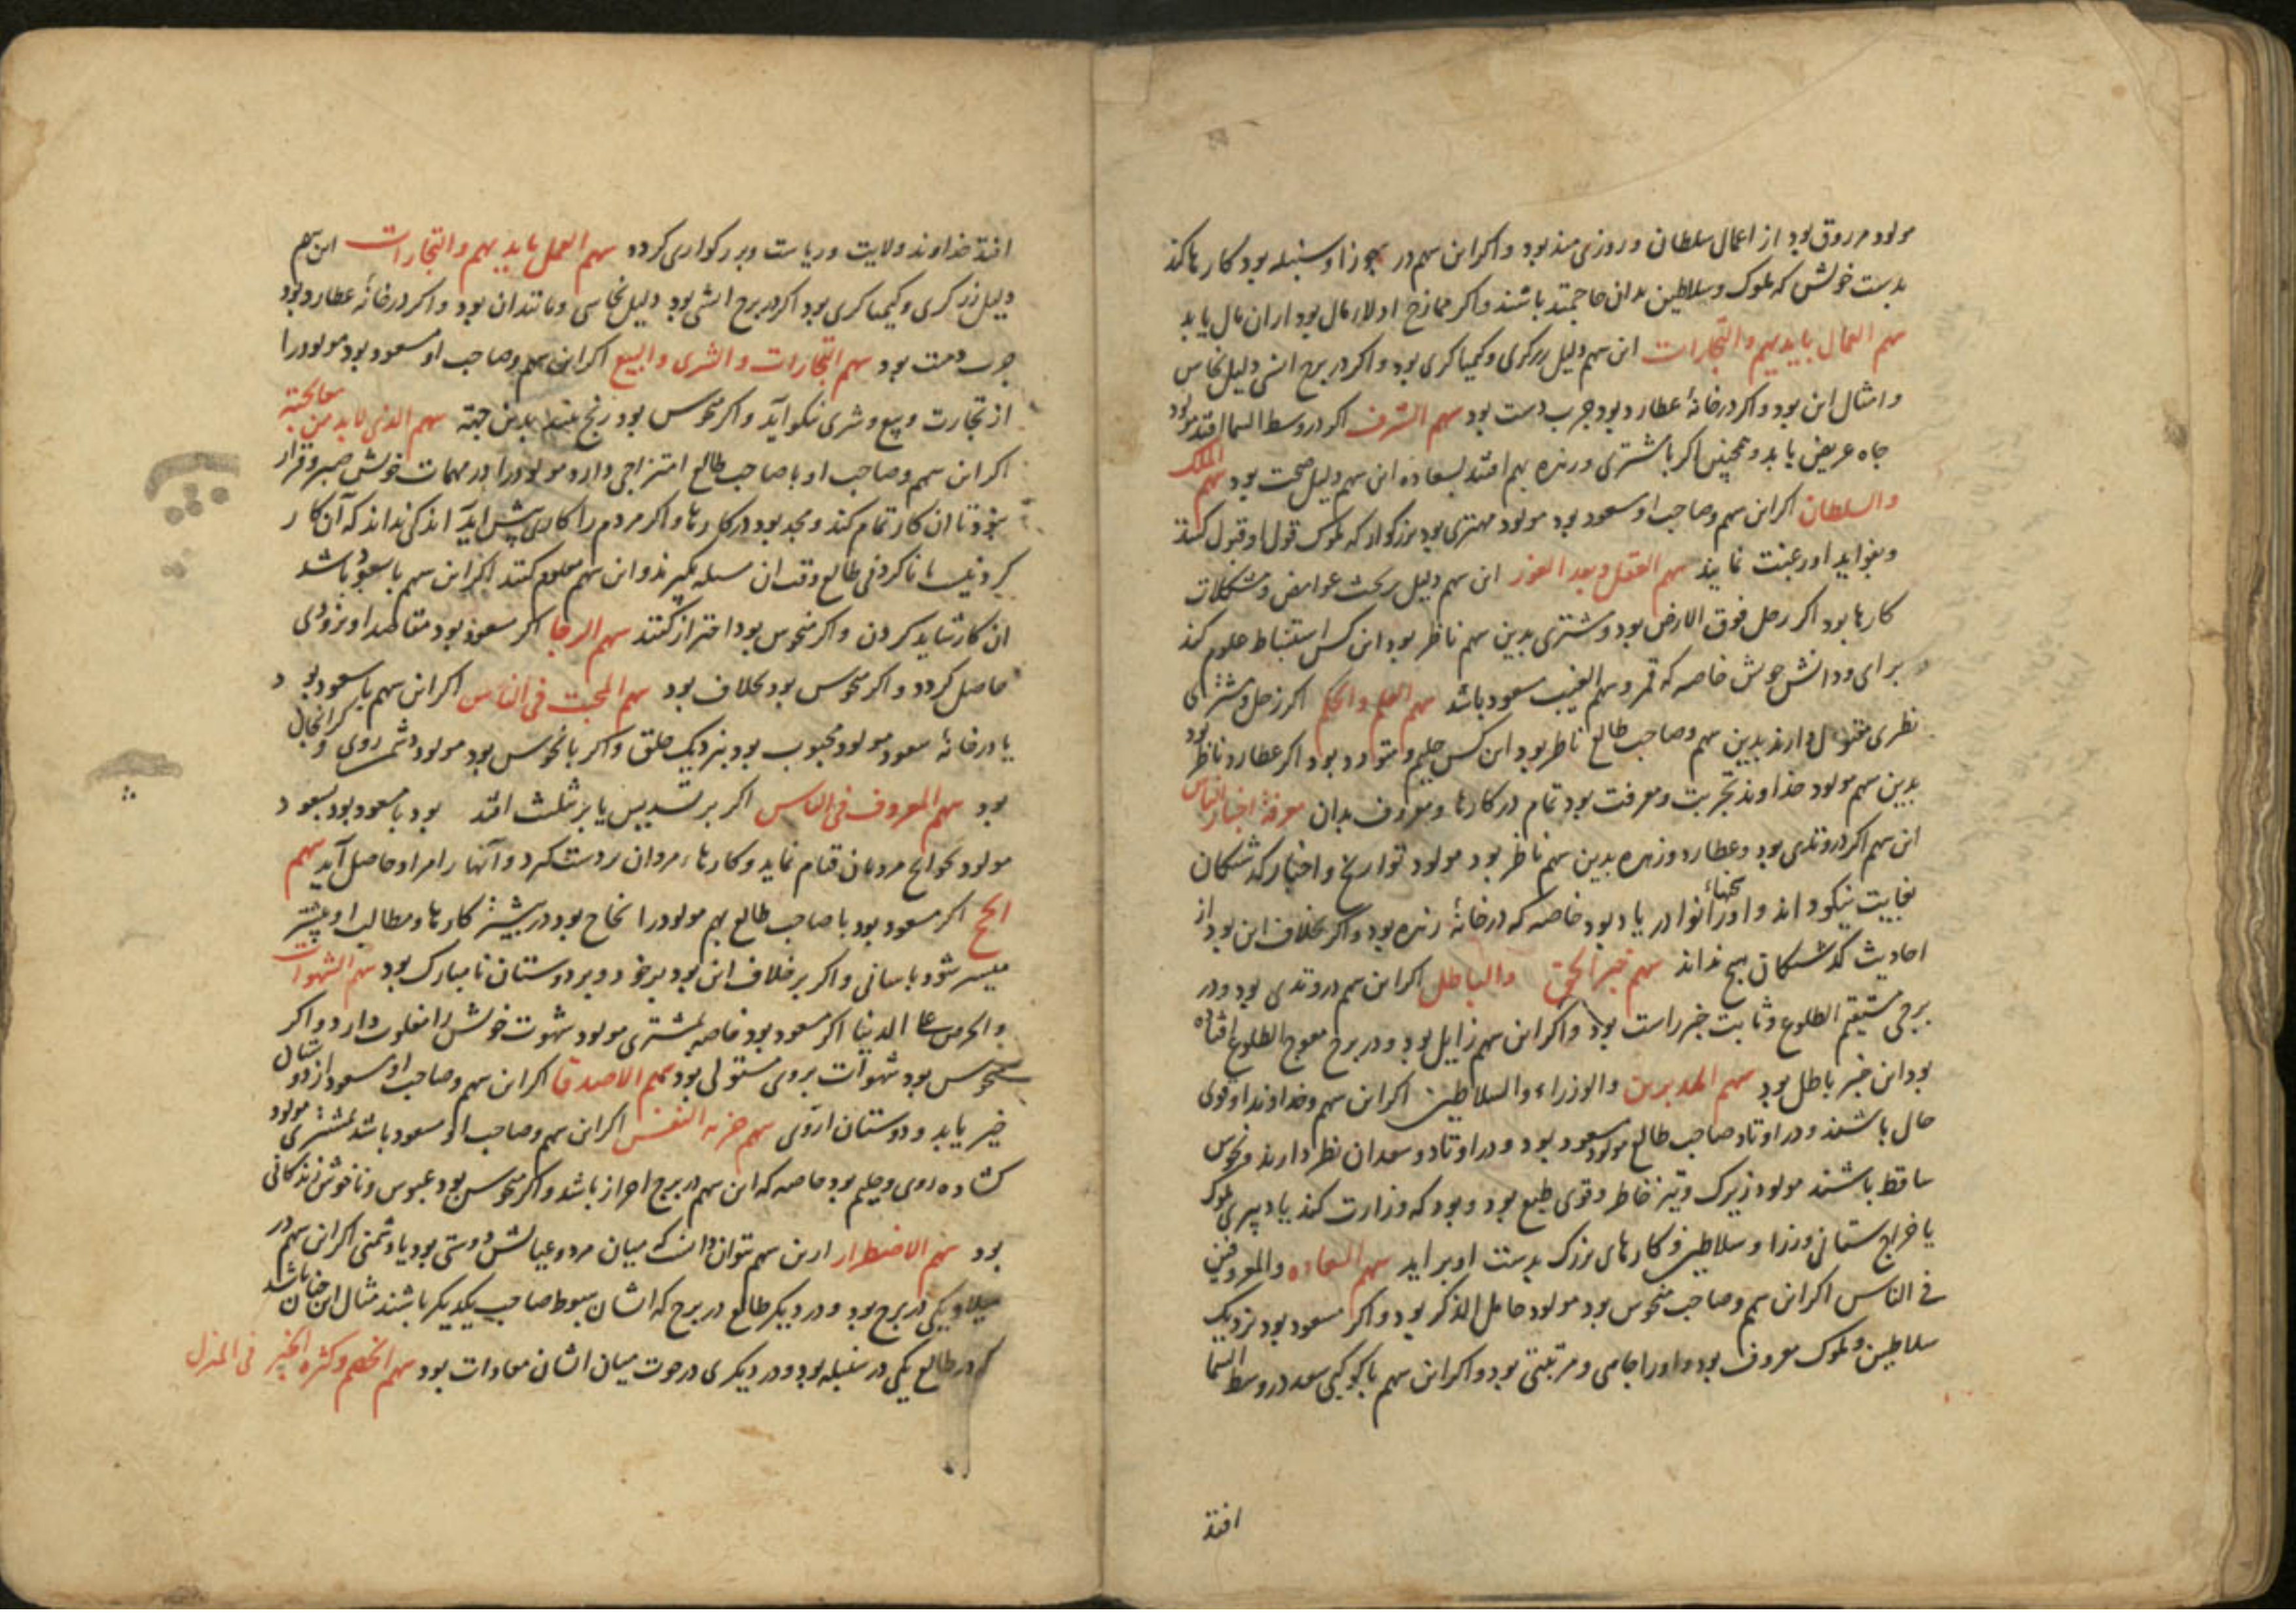 مولود مرزوق بود از اعمال سلطان و روزی مند بود و اکر این سهم در جوزا و سنبله بود کارها کند
بدست خویش که ملوک و سلاطین بدان حاجتمند باشند و اکر ممازج اولاد مال بود از ان مال یابد
سهم العمال بایدیهم والتجارات این سهم دلیل زرکری و کیمیاکری بود و اکر در برج انسی دلیل نخاس
و امثال این بود و اکر در خانهٔ عطارد بود چرب دست بود سهم الشرف اکر در وسط السما افتد مولود
جاه عریض یابد و همچنین اکر با مشتری و زهره بهم افتد بسعاده این سهم دلیل صحت بود سهم الملک
والسلطان اکر این سهم و صاحب او مسعود بود مولود مهتری بود بزرکوار که ملوک قول او قبول کنند
و بفواید او رغبت نمایند سهم العقل و بعد الغور این سهم دلیل بر بحث غوامض و مشکلات
کارها بود اکر زحل فوق الارض بود و مشتری بدین سهم ناظر بود این کس استنباط علوم کند
برای و دانش خویش خاصه که قمر و سهم الغیب مسعود باشد سهم العلم والحکم اکر زحل و مشتری
نظری مقبول دارند بدین سهم و صاحب طالع ناظر بود این کس حلیم و متودد بود اکر عطارد ناظر بود
بدین سهم مولود خداوند تجربت و معرفت بود تمام در کارها و معروف بدان معرفة اخبار الناس
این سهم اکر در وتدی بود و عطارد و زهره بدین سهم ناظر بود مولود تواریخ و اخبار کذشتکان
بغایت نیکو داند و اورا سخنهاء نوادر یاد بود خاصه که در خانهٔ زهره بود و اکر بخلاف این بود از
احادیث کذشتکان هیچ نداند سهم خبر الحق والباطل اکر این سهم در وتدی بود و در
برجی مستقیم الطلوع و ثابت خبر راست بود و اکر این سهم زایل بود و در برج معوج الطلوع افتاده
بود این خبر باطل بود سهم المدبرین والوزراء والسلاطین اکر این سهم و خداوند او قوی
حال باشند و در اوتاد صاحب طالع مولود مسعود بود و در اوتاد و سعدان نظر دارند و نحوس
ساقط باشند مولود زیرک و تیز خاطر و قوی طبع بود و بود که وزارت کند یا دبیری ملوک
یا خراج ستانی وزرا و سلاطین و کارهای بزرک بدست او براید سهم السعاده والمعروفین
فی الناس اکر این سهم و صاحب منحوس بود مولود خامل الذکر بود و اکر مسعود بود نزدیک
سلاطین و ملوک معروف بود و اورا جاهی و مرتبتی بود و اکر این سهم با کوکبی سعد در وسط السما
افتد
افتد خداوند ولایت و ریاست و بزرکواری کردد سهم العمل بایدیهم والتجارات این سهم
دلیل زرکری و کیمیاکری بود اکر در برج انسی بود دلیل نخاسی و مانند ان بود و اکر در خانهٔ عطارد بود
چرب دست بود سهم التجارات والشری والبیع اکر این سهم و صاحب او مسعود بود مولود را
از تجارت و بیع و شری نیکو آید و اکر نحوس بود رنج بیند بدین جهة سهم الذی لابد من معالجته
اکر این سهم و صاحب او با صاحب طالع امتزاجی دارد مولود را در مهمات خویش صبر و قرار
نبود تا ان کار تمام کند و مجد بود در کارها و اکر مردم را کاری پیش اید انکه نداند که آن کار
کردنیست یا ناکردنی طالع وقت ان مسله بکیرند و این سهم معلوم کنند اکر این سهم با سعود باشد
ان کار شاید کردن و اکر منحوس بود احتراز کنند سهم الرجا اکر مسعود بود مقاصد او بزودی
حاصل کردد و اکر نحوس بود بخلاف بود سهم المحبت فی الناس اکر این سهم با سعود بود
یا در خانهاء سعود مولود محبوب بود بنزدیک خلق و اکر با نحوس بود مولود دشمن روی و کرانجان
بود سهم المعروف فی الناس اکر بر تسدیس یا بر تثلیث افتد بود با سعود بود
مولود بحوایج مردمان قیام نماید و کارهاء مردان بردست کیرد و آنها را مراد حاصل آید سهم
الحج اکر مسعود بود با صاحب طالع بهم مولود را نجاح بود در بیشتر کارها و مطالب او بیشتر
میسر شود باسانی و اکر بر خلاف این بود بر خود و بر دوستان نامبارک بود سهم الشهوات
والحرص علی الدنیا اکر مسعود بود خاصه بمشتری مولود شهوت خویش را مغلوب دارد و اکر
نحوس بود شهوات بروی مستولی بود سهم الاصدقا اکر این سهم و صاحب او مسعود از دوستان
خیر یابد و دوستان از وی سهم حریة النفس اکر این سهم و صاحب او مسعود باشد بمشتری مولود
کشاده روی و حلیم بود خاصه که این سهم در برج احرار باشد و اکر نحوس بود عبوس و ناخوش زندکانی
بود سهم الاضطرار از این سهم توان دانست که میان مرد و عیالش دوستی بود یا دشمنی اکر این سهم در
میلاد یکی در برج بود و در دیکر طالع در برج که ایشان هبوط صاحب یکدیکر باشند مثال این چنان باشد
که در طالع یکی در سنبله بود و در دیکری در حوت میان ایشان معادات بود سهم الخصم و کثرة الخیر فی المنزل